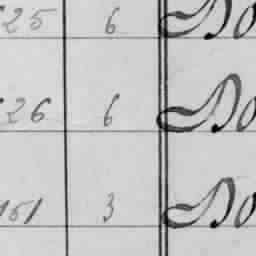 25 6 Do
26 6 Do
151 3 Do